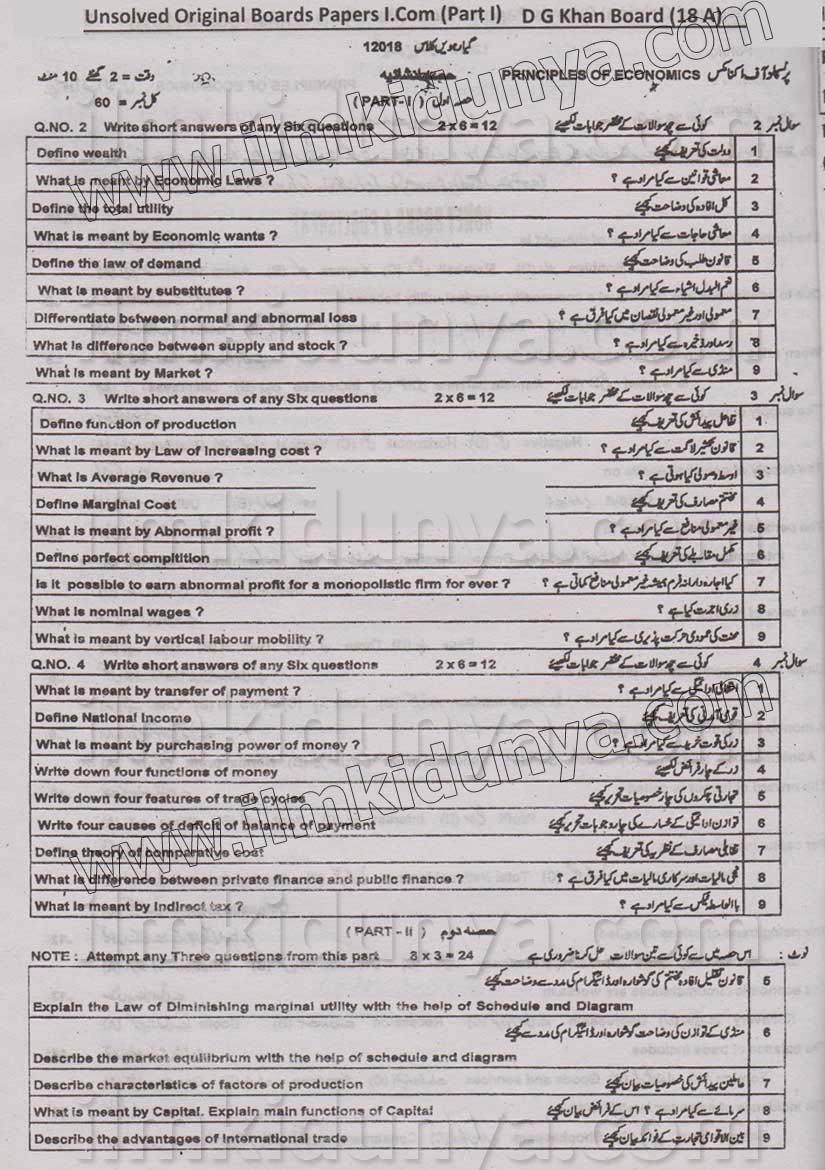 Unsolved Original Boards Papers I.Com (Part I) D G Khan Board (18 A)
12018 گیارہویں کلاس
PRINCIPLES OF ECONOMICS پرنسپلز آف اکنامکس وقت = 2 گھنٹے 10 منٹ
کل نمبر = 60 (PART-I) حصہ اول
Q.NO. 2 Write short answers of any Six questions 2 x 6 = 12 کوئی سے چھ سوالات کے مختصر جوابات لکھیئے سوال نمبر 2
Define wealth دولت کی تعریف کیجئے 1
What is meant by Economic Laws ? معاشی قوانین سے کیا مراد ہے ؟ 2
Define the total utility کل افادہ کی وضاحت کیجئے 3
What is meant by Economic wants ? معاشی حاجات سے کیا مراد ہے ؟ 4
Define the law of demand قانون طلب کی وضاحت کیجئے 5
What is meant by substitutes ? نعم البدل اشیاء سے کیا مراد ہے ؟ 6
Differentiate between normal and abnormal loss معمولی اور غیر معمولی نقصان میں کیا فرق ہے ؟ 7
What is difference between supply and stock ? رسد اور ذخیرہ سے کیا مراد ہے ؟ 8
What is meant by Market ? منڈی سے کیا مراد ہے ؟ 9
Q.NO. 3 Write short answers of any Six questions 2 x 6 = 12 کوئی سے چھ سوالات کے مختصر جوابات لکھیئے سوال نمبر 3
Define function of production تفاعل پیدائش کی تعریف کیجئے 1
What is meant by Law of increasing cost ? قانون تکثیر لاگت سے کیا مراد ہے ؟ 2
What is Average Revenue ? اوسط وصولی کیا ہوتی ہے ؟ 3
Define Marginal Cost مختتم مصارف کی تعریف کیجئے 4
What is meant by Abnormal profit ? غیر معمولی منافع سے کیا مراد ہے ؟ 5
Define perfect compitition مکمل مقابلے کی تعریف کیجئے 6
Is it possible to earn abnormal profit for a monopolistic firm for ever ? کیا اجارہ دارانہ فرم ہمیشہ غیر معمولی منافع کماتی ہے ؟ 7
What is nominal wages ? زری اجرت کیا ہے ؟ 8
What is meant by vertical labour mobility ? محنت کی عمودی حرکت پذیری سے کیا مراد ہے ؟ 9
Q.NO. 4 Write short answers of any Six questions 2 x 6 = 12 کوئی سے چھ سوالات کے مختصر جوابات لکھیئے سوال نمبر 4
What is meant by transfer of payment ? انتقالی ادائیگی سے کیا مراد ہے ؟ 1
Define National Income قومی آمدنی کی تعریف کیجئے 2
What is meant by purchasing power of money ? زر کی قوت خرید سے کیا مراد ہے ؟ 3
Write down four functions of money زر کے چار فرائض لکھیئے 4
Write down four features of trade cycles تجارتی چکروں کی چار خصوصیات تحریر کیجئے 5
Write four causes of deficit of balance of payment توازن ادائیگی کے خسارے کی چار وجوہات تحریر کیجئے 6
Define theory of comparative cost تقابلی مصارف کے نظریہ کی تعریف کیجئے 7
What is difference between private finance and public finance ? نجی مالیات اور سرکاری مالیات میں کیا فرق ہے ؟ 8
What is meant by Indirect tax ? بالواسطہ ٹیکس سے کیا مراد ہے ؟ 9
(PART - II) حصہ دوم
NOTE : Attempt any Three questions from this part 8 x 3 = 24 اس حصہ میں سے کوئی سے تین سوالات حل کرنا ضروری ہے نوٹ :
قانون تقلیل افادہ مختتم کی گوشوارہ اور ڈائیگرام کی مدد سے وضاحت کیجئے 5
Explain the Law of Diminishing marginal utility with the help of Schedule and Diagram
منڈی کے توازن کی وضاحت گوشوارہ اور ڈائیگرام کی مدد سے کیجئے 6
Describe the market equilibrium with the help of schedule and diagram
Describe characteristics of factors of production عاملین پیدائش کی خصوصیات بیان کیجئے 7
What is meant by Capital. Explain main functions of Capital سرمائے سے کیا مراد ہے ؟ اس کے فرائض بیان کیجئے 8
Describe the advantages of International trade بین الاقوامی تجارت کے فوائد بیان کیجئے 9
www.ilmkidunya.com